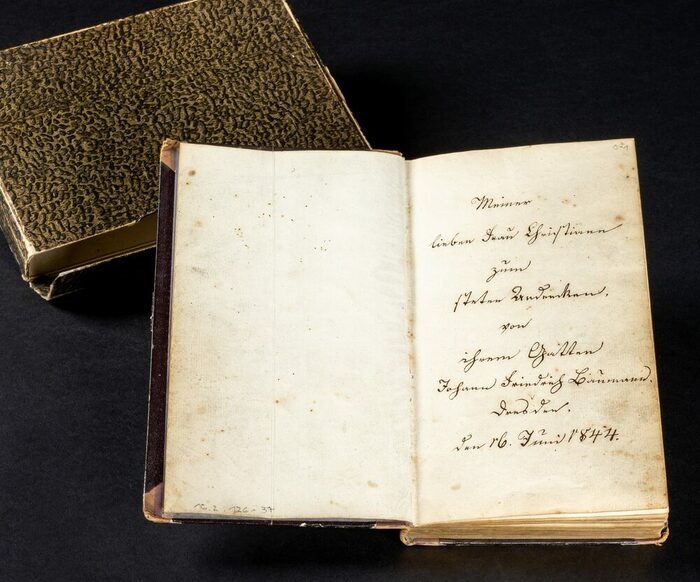 Meiner
lieben Frau Christiane
zum
steten Andencken,
von
ihrem Gatten
Johann Friedrich Baumann.
Dresden.
den 16. Juni 1844.